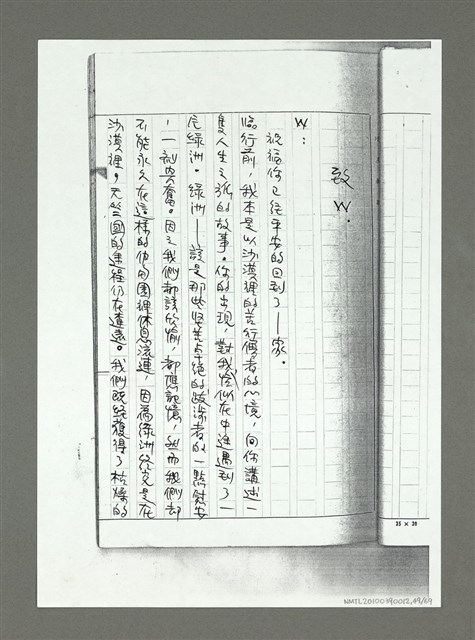 致W.
W：
祝福你已經平安的回到了——家。
臨行前，我本是以沙漠裡的苦行僧者的心境，向你講述一
隻人生之旅的故事。你的出現，對我恰似在中途遇到了一
片綠洲。綠洲——該是那些堅苦卓絕的跋涉者的一點慰安
，一刻興奮。因之我們都該欣愉，都應記憶，然而我們卻
不能永久在這樣的倘佯裡休息流連，因為綠洲終究是在
沙漠裡，天竺國的途程仍在遙遠。我們既經獲得了枯燥的
25 × 20
NMTL20100390012,49/69